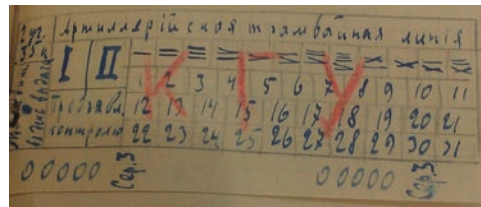 Артиллерійская трамвайная линія
I II I II III IV V VI VII VIII IX X XI XII
1 2 3 4 5 6 7 8 9 10 11
Предъявл. 12 13 14 15 16 17 18 19 20 21
контролю 22 23 24 25 26 27 28 29 30 31
00000 Сер.3 00000 Сер.3